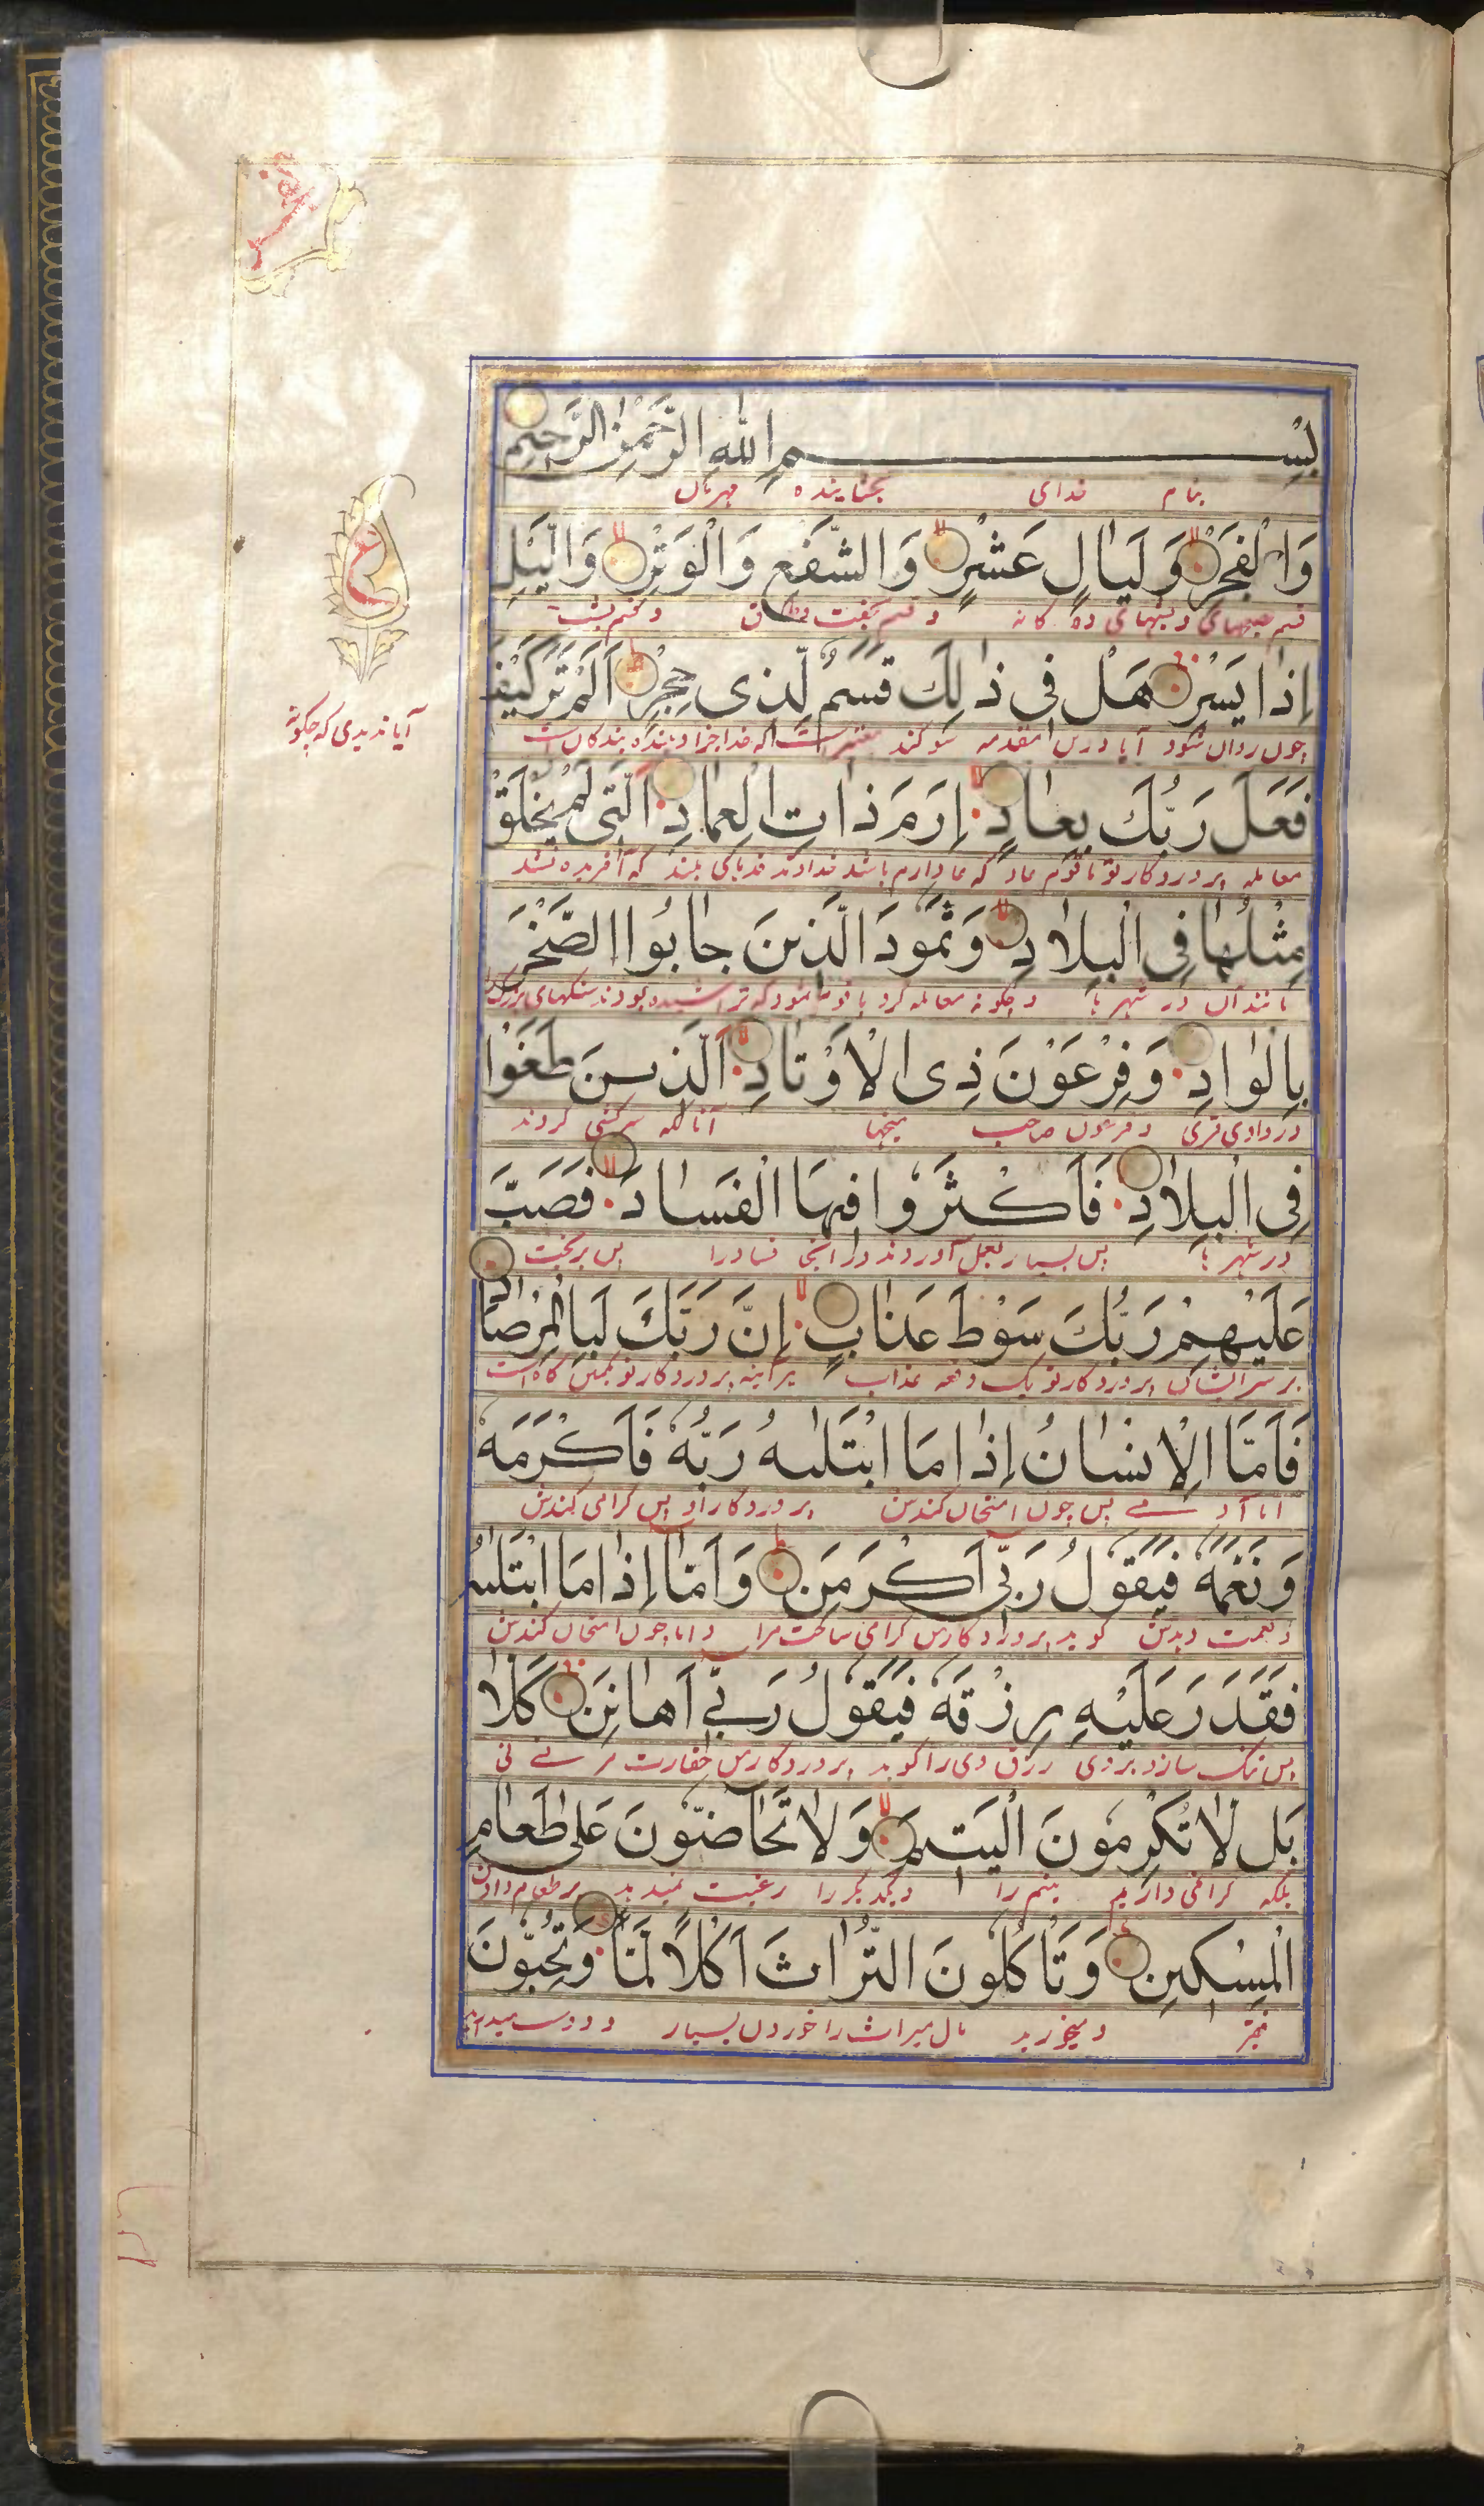 بِسْمِ اللّٰهِ الرَّحْمٰنِ الرَّحِيمِ
بنام خدای بخشاینده مهربان
وَالْفَجْرِ وَلَيَالٍ عَشْرٍ وَالشَّفْعِ وَالْوَتْرِ وَالَّيْلِ
اِذَا يَسْرِ هَلْ فِى ذٰلِكَ قَسَمٌ لِّذِى حِجْرٍ اَلَمْ تَرَ كَيْفَ
چون روان شود آیا درین مقدمه سوگند
آیا ندیدی که چگونه
فَعَلَ رَبُّكَ بِعَادٍ اِرَمَ ذَاتِ الْعِمَادِ الَّتِى لَمْ يُخْلَقْ
معامله پروردگار تو با قوم عاد که عاد ارم باشد خداوند قدهای بلند که آفریده نشد
مِثْلُهَا فِى الْبِلَادِ وَثَمُودَ الَّذِينَ جَابُوا الصَّخْرَ
مانند آن در شهرها و چگونه معامله کرد با قوم ثمود که تراشیده بودند سنگهای بزرگ
بِالْوَادِ وَفِرْعَوْنَ ذِى الْاَوْتَادِ الَّذِينَ طَغَوْا
در وادی قری و فرعون صاحب میخها آنانکه سرکشی کردند
فِى الْبِلَادِ فَاَكْثَرُوا فِيهَا الْفَسَادَ فَصَبَّ
در شهرها پس بسیار بعمل آوردند در آنجا فساد را پس بریخت
عَلَيْهِمْ رَبُّكَ سَوْطَ عَذَابٍ اِنَّ رَبَّكَ لَبِالْمِرْصَادِ
بر سر ایشان پروردگار تو یک دفعه عذاب هر آینه پروردگار تو بکمین گاه است
فَاَمَّا الْاِنْسَانُ اِذَا مَا ابْتَلٰىهُ رَبُّهُ فَاَكْرَمَهُ
اما آدمی پس چون امتحان کندش پروردگار او پس گرامی کندش
وَنَعَّمَهُ فَيَقُولُ رَبِّى اَكْرَمَنِ وَاَمَّا اِذَا مَا ابْتَلٰىهُ
و نعمت دهدش گوید پروردگار من گرامی ساخت مرا و اما چون امتحان کندش
فَقَدَرَ عَلَيْهِ رِزْقَهُ فَيَقُولُ رَبِّى اَهَانَنِ كَلَّا
پس تنگ سازد بروی رزق وی را گوید پروردگار من حقارت کرد
بَل لَّا تُكْرِمُونَ الْيَتِيمَ وَلَا تَحَاضُّونَ عَلٰى طَعَامِ
بلکه گرامی ندارید یتیم را و یکدیگر را رغبت نمیدهید بر طعام دادن
الْمِسْكِينِ وَتَأْكُلُونَ التُّرَاثَ اَكْلًا لَّمًّا وَتُحِبُّونَ
فقیر و میخورید مال میراث را خوردن بسیار و دوست میدارید